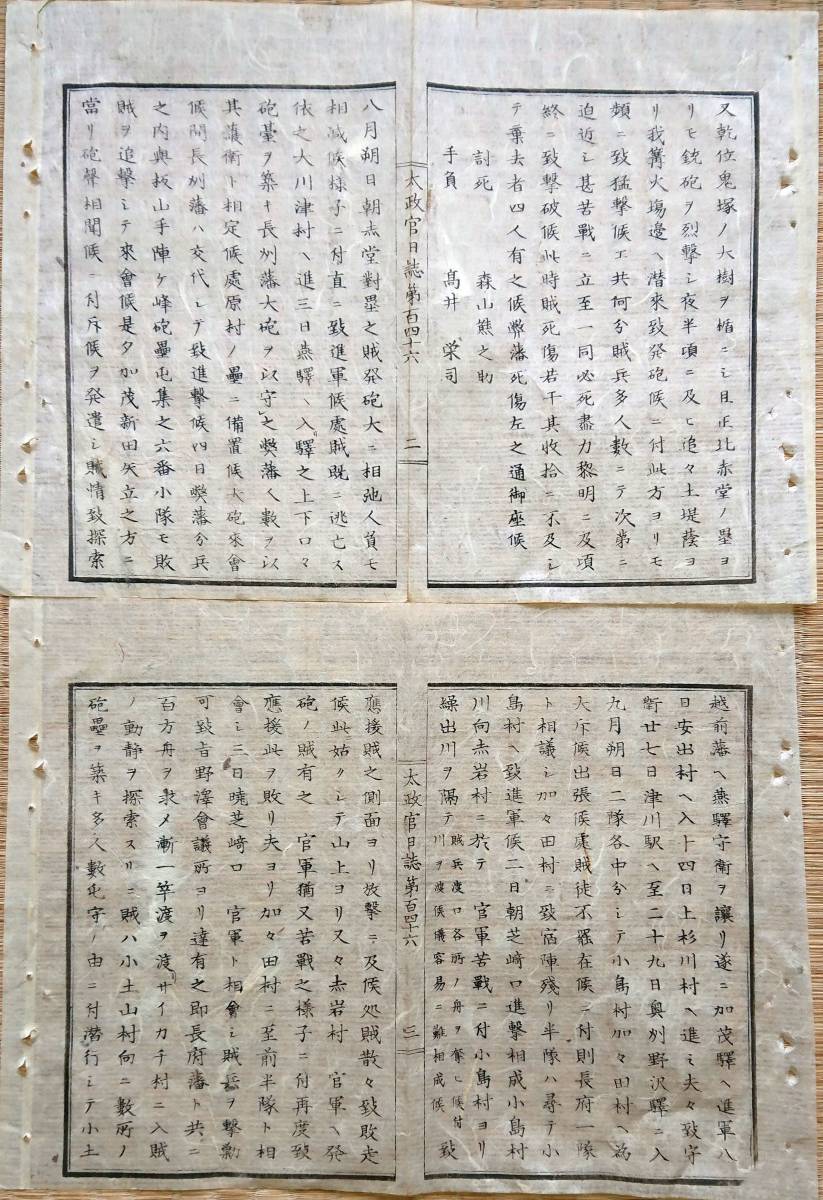 又乾位鬼塚ノ大樹ヲ楯ニシ且正北赤堂ノ塁ヨ
リモ銃砲ヲ烈撃シ夜半頃ニ及ヒ追々土堤蔭ヨ
リ我篝火塲邊ヘ潜来致発砲候ニ付此方ヨリモ
頻ニ致猛撃候エ共何分賊兵多人数ニテ次第ニ
迫近シ甚苦戰ニ立至一同必死盡力黎明ニ及頃
終ニ致撃破候此時賊死傷若干其収拾ニ不及シ
テ棄去者四人有之候弊藩死傷左之通御座候
討死 森山熊之助
手負 髙井 栄司
太政官日誌第百四十六 二
八月朔日朝赤堂對塁之賊発砲大ニ相弛人負モ
相减候様子ニ付直ニ致進軍候處賊既ニ逃亡ス
依之大川津村ヘ進三日燕驛ヘ入驛之上下口々
砲臺ヲ築キ長州藩大砲ヲ以守之獘藩人數ヲ以
其護衛ト相定候處原村ノ壘ニ備置候大砲來會
候間長州藩ハ交代シテ致進撃候四日獘藩分兵
之内與板山手陣ケ峰砲壘屯集之六番小隊モ敗
賊ヲ追撃シテ來會候是夕加茂新田矢立之方ニ
當リ砲聲相聞候ニ付斥候ヲ発遣シ賊情致探索
越前藩ヘ燕驛守衛ヲ讓リ遂ニ加茂驛ヘ進軍八
日安出村ヘ入十四日上杉川村ヘ進ミ夫々致守
衛廿七日津川駅ヘ至二十九日奥州野沢驛ニ入
九月朔日二隊各中分シテ小島村加々田村ヘ為
大斥候出張候處賊徒不罷在候ニ付則長府一隊
ト相議シ加々田村ニ致宿陣殘リ半隊ハ尋テ小
島村ヘ致進軍候二日朝芝﨑口進撃相成小島村
川向赤岩村ニ於テ 官軍苦戰ニ付小島村ヨリ
繰出川ヲ隔テ賊兵渡口各所ノ舟ヲ奪ヒ候付川ヲ渡候儀容易ニ難相成候致
太政官日誌第百四十六 三
應援賊之側面ヨリ放撃ニ及候処賊散々致敗走
候此姑クシテ山上ヨリ又々赤岩村 官軍ヘ発
砲ノ賊有之 官軍猶又苦戰之様子ニ付再度致
應援此ヲ敗リ夫ヨリ加々田村ニ至前半隊ト相
會シ三日曉芝﨑口 官軍ト相會シ賊兵ヲ撃勦
可致旨野澤會議所ヨリ達有之即長府藩ト共ニ
百方舟ヲ求メ漸一竿渡ヲ渡サイカチ村ニ入賊
ノ動静ヲ探索スルニ賊ハ小土山村向ニ數所ノ
砲壘ヲ築キ多人數屯守ノ由ニ付潜行シテ小土